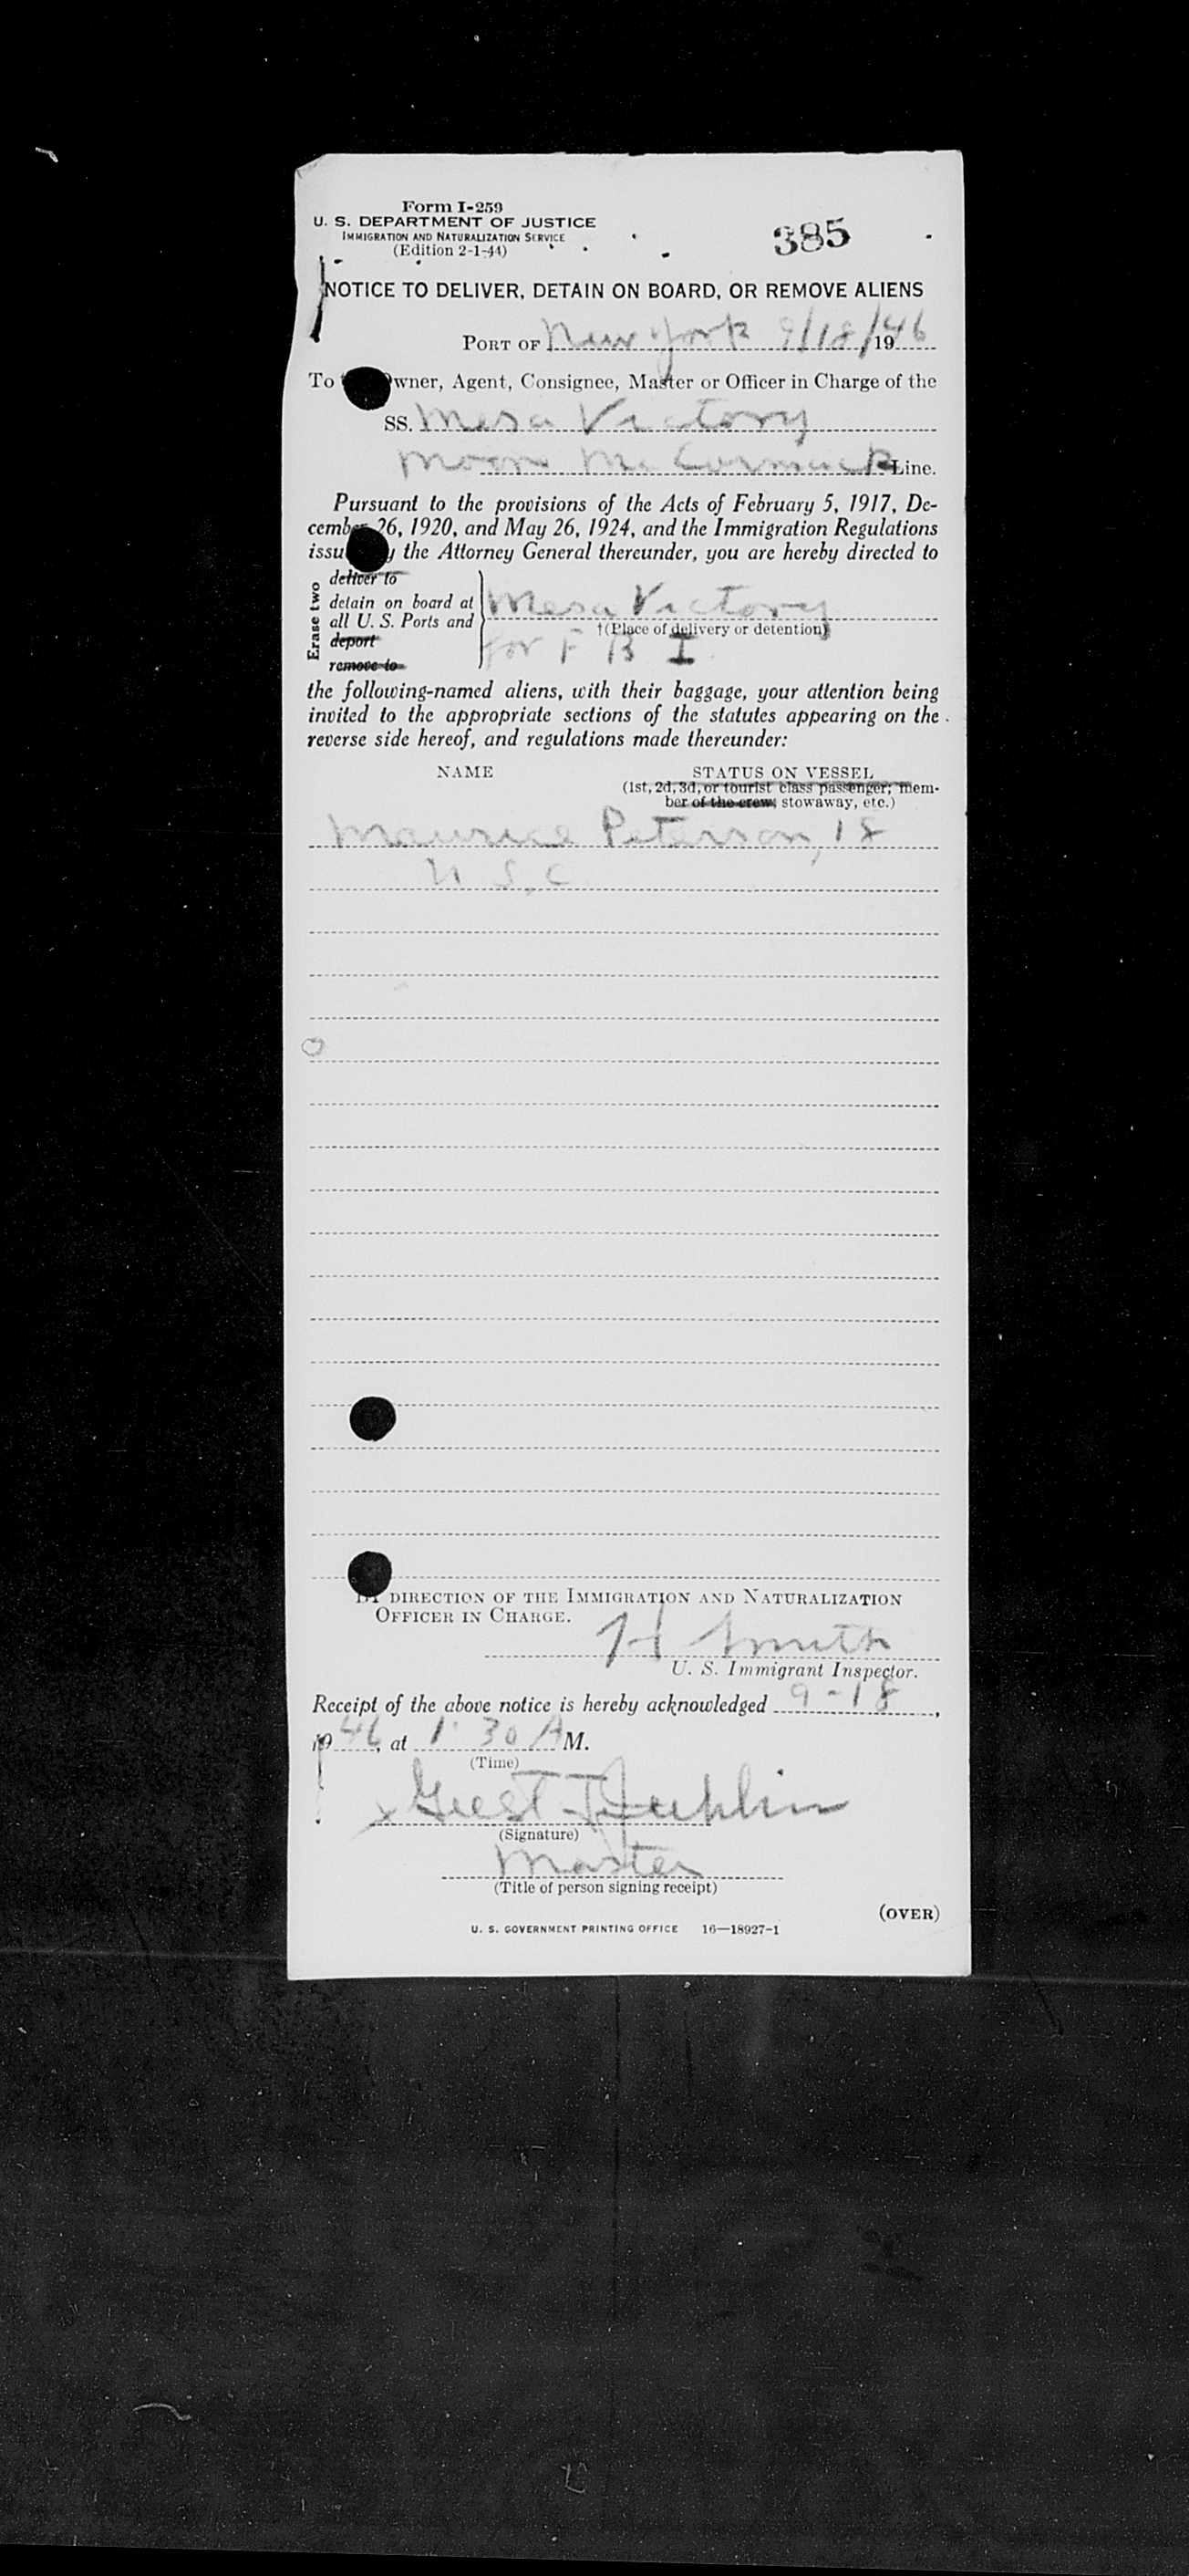 Form I-259
U. S. DEPARTMENT OF JUSTICE
IMMIGRATION AND NATURALIZATION SERVICE
(Edition 2-1-44)
385
NOTICE TO DELIVER, DETAIN ON BOARD, OR REMOVE ALIENS
PORT OF New York 9/18/, 1946
To Owner, Agent, Consignee, Master or Officer in Charge of the
SS. Mesa Victory
Moore McCormack Line.
Pursuant to the provisions of the Acts of February 5, 1917, De-
cember 26, 1920, and May 26, 1924, and the Immigration Regulations
issu y the Attorney General thereunder, you are hereby directed to
Erase two
deliver to
detain on board at
all U. S. Ports and
deport
remove to
Mesa Victory
†(Place of delivery or detention)
for F B I
the following-named aliens, with their baggage, your attention being
invited to the appropriate sections of the statutes appearing on the
reverse side hereof, and regulations made thereunder:
NAME STATUS ON VESSEL
(1st, 2d, 3d, or tourist class passenger; mem-
ber of the crew; stowaway, etc.)
Maurice Peterson, 18
U.S.C.
BY DIRECTION OF THE IMMIGRATION AND NATURALIZATION
OFFICER IN CHARGE.
H Smith
U. S. Immigrant Inspector.
Receipt of the above notice is hereby acknowledged 9-18,
1946, at 1:30 A M.
(Time)
x Guest
(Signature)
Master
(Title of person signing receipt)
(OVER)
U. S. GOVERNMENT PRINTING OFFICE 16—18927-1